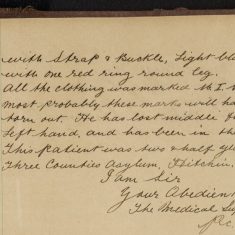 with Strap & Buckle, Light bl
with one red ring round leg.
All the clothing was marked
most probably these marks will ha
torn out. He has lost middle f
left hand, and has been in th
This patient was two & half
Three Counties Asylum, Hitchin.
I am Sir
Your Obedien
The Medical Su